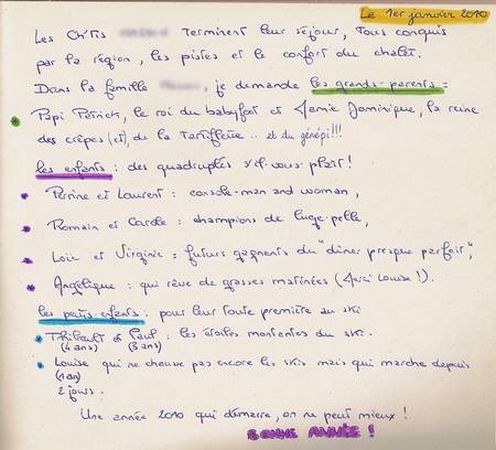 Le 1er janvier 2010
Les Ch'tis terminent leur séjour, tous conquis
par la région, les pistes et le confort du chalet.
Dans la famille , je demande les grands-parents :
Papi Patrick, le roi du babyfoot et Mamie Dominique, la reine
des crêpes (et) de la tartiflette .. et du génépi!!!
les enfants : des quadruplés s'il vous plaît !
Perrine et Laurent : console-man and woman,
Romain et Carole : champions de luge-pelle,
Loïc et Virginie : futurs gagnants du "dîner presque parfait",
Angélique : qui rêve de grasses matinées (Merci Louise !).
les petits enfants : pour leur toute première au ski
Thibault et Paul : les étoiles montantes du ski.
(4 ans) (3 ans)
Louise qui ne chausse pas encore les skis mais qui marche depuis
(1 an)
2 jours.
Une année 2010 qui démarre, on ne peut mieux !
BONNE ANNÉE !